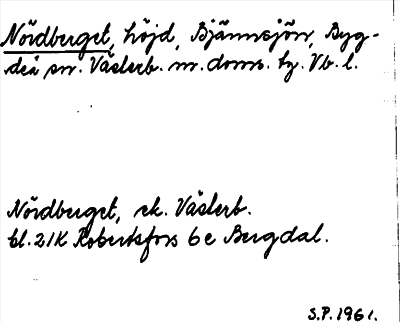 Nördberget, höjd, Bjännsjön, Byg-
deå sn. Västerb. m. doms. tg. Vb. l.
Nördberget, ek. Västerb.
bl. 21K Robertsfors 6e Bergdal.
S.P. 1961.